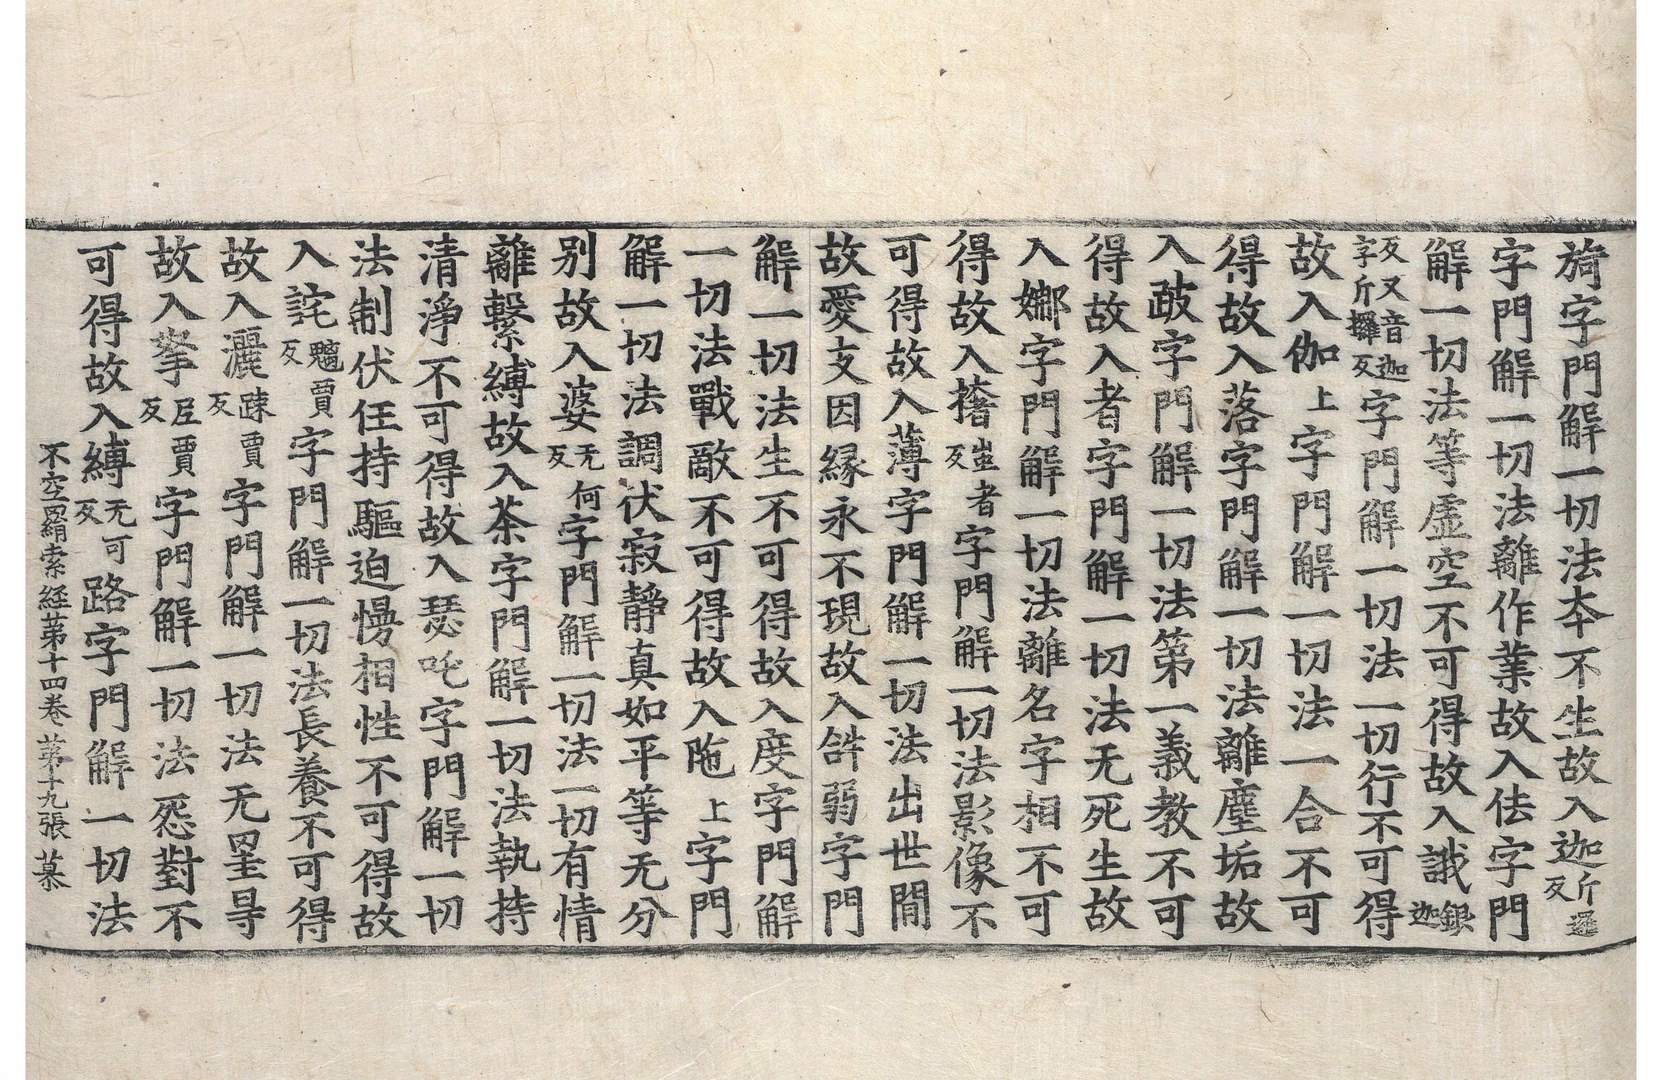 旖字門解一切法本不生故入迦斤邏反
字門解一切法離作業故入佉字門
解一切法等虛空不可得故入誐銀迦
反又音迦字斤攞反字門解一切法一切行不可得
故入伽上字門解一切法一合不可
得故入落字門解一切法離塵垢故
入跛字門解一切法第一義教不可
得故入者字門解一切法无死生故
入娜字門解一切法離名字相不可
得故入撦蚩者反字門解一切法影像不
可得故入薄字門解一切法出世間
故愛支因緣永不現故入弱字門
解一切法生不可得故入度字門解
一切法戰敵不可得故入陁上字門
解一切法調伏寂靜真如平等无分
別故入婆无何反字門解一切法一切有情
離繫縛故入荼字門解一切法執持
清淨不可得故入瑟吒字門解一切
法制伏任持驅迫慢相性不可得故
入詫魑賈反字門解一切法長養不可得
故入灑疎賈反字門解一切法无罣㝵
故入拏𡰱賈反字門解一切法怨對不
可得故入縛无可反路字門解一切法
不空羂索經第十四卷 第十九張 慕